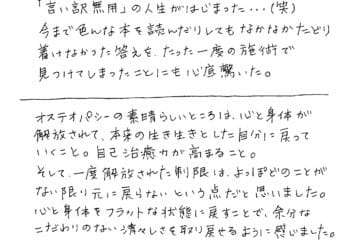 「言い訳無用」の人生がはじまった・・・(笑)
今まで色んな本を読んだりしてもなかなかたどり
着けなかった答えを、たった一度の施術で
見つけてしまったことにも心底驚いた。
オステオパシーの素晴らしいところは、心と身体が
解放されて、本来の生き生きとした自分に戻って
いくこと。自己治癒力が高まること。
そして、一度解放された制限は、よっぽどのことが
ない限り元に戻らないという点だと思いました。
心と身体をフラットな状態に戻すことで、余分な
こだわりのない清々しさを取り戻せるように感じました。